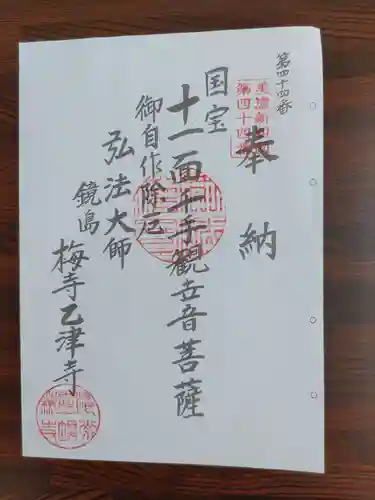 第四十四番
奉納
国宝
十一面千手観世音菩薩
御自作除厄
弘法大師
鏡島
梅寺乙津寺